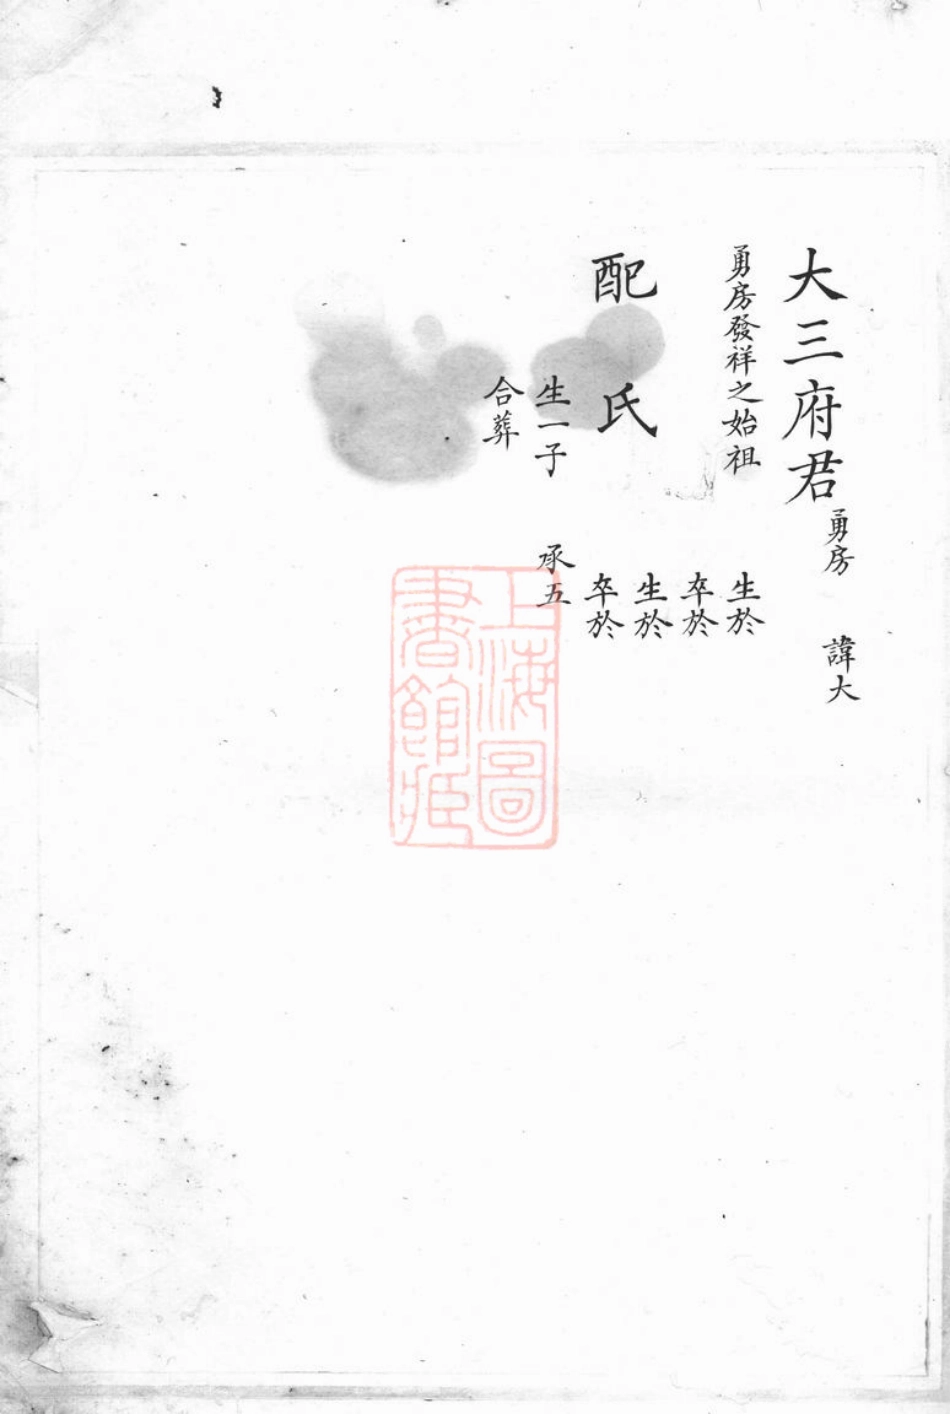 大三府君 勇房 諱大
勇房發祥之始祖 生於
卒於
生於
配 氏 卒於
生一子 承五
合葬
上海圖
書館藏